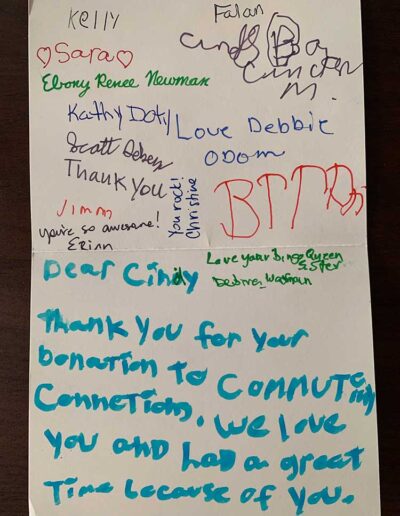 Kelly
Falan
♡Sara♡
Cindy B
Ebony Renee Newman
Kathy Doty
Love Debbie
Odom
Scott
Thank you
You rock!
Christine
Jimm
you're so awesome!
Erinn
Love your Bingo Queen
Sister
Debra
Dear Cindy
Thank you for your
Donation to Commute
Connetions. We Love
you and had a great
Time because of you.